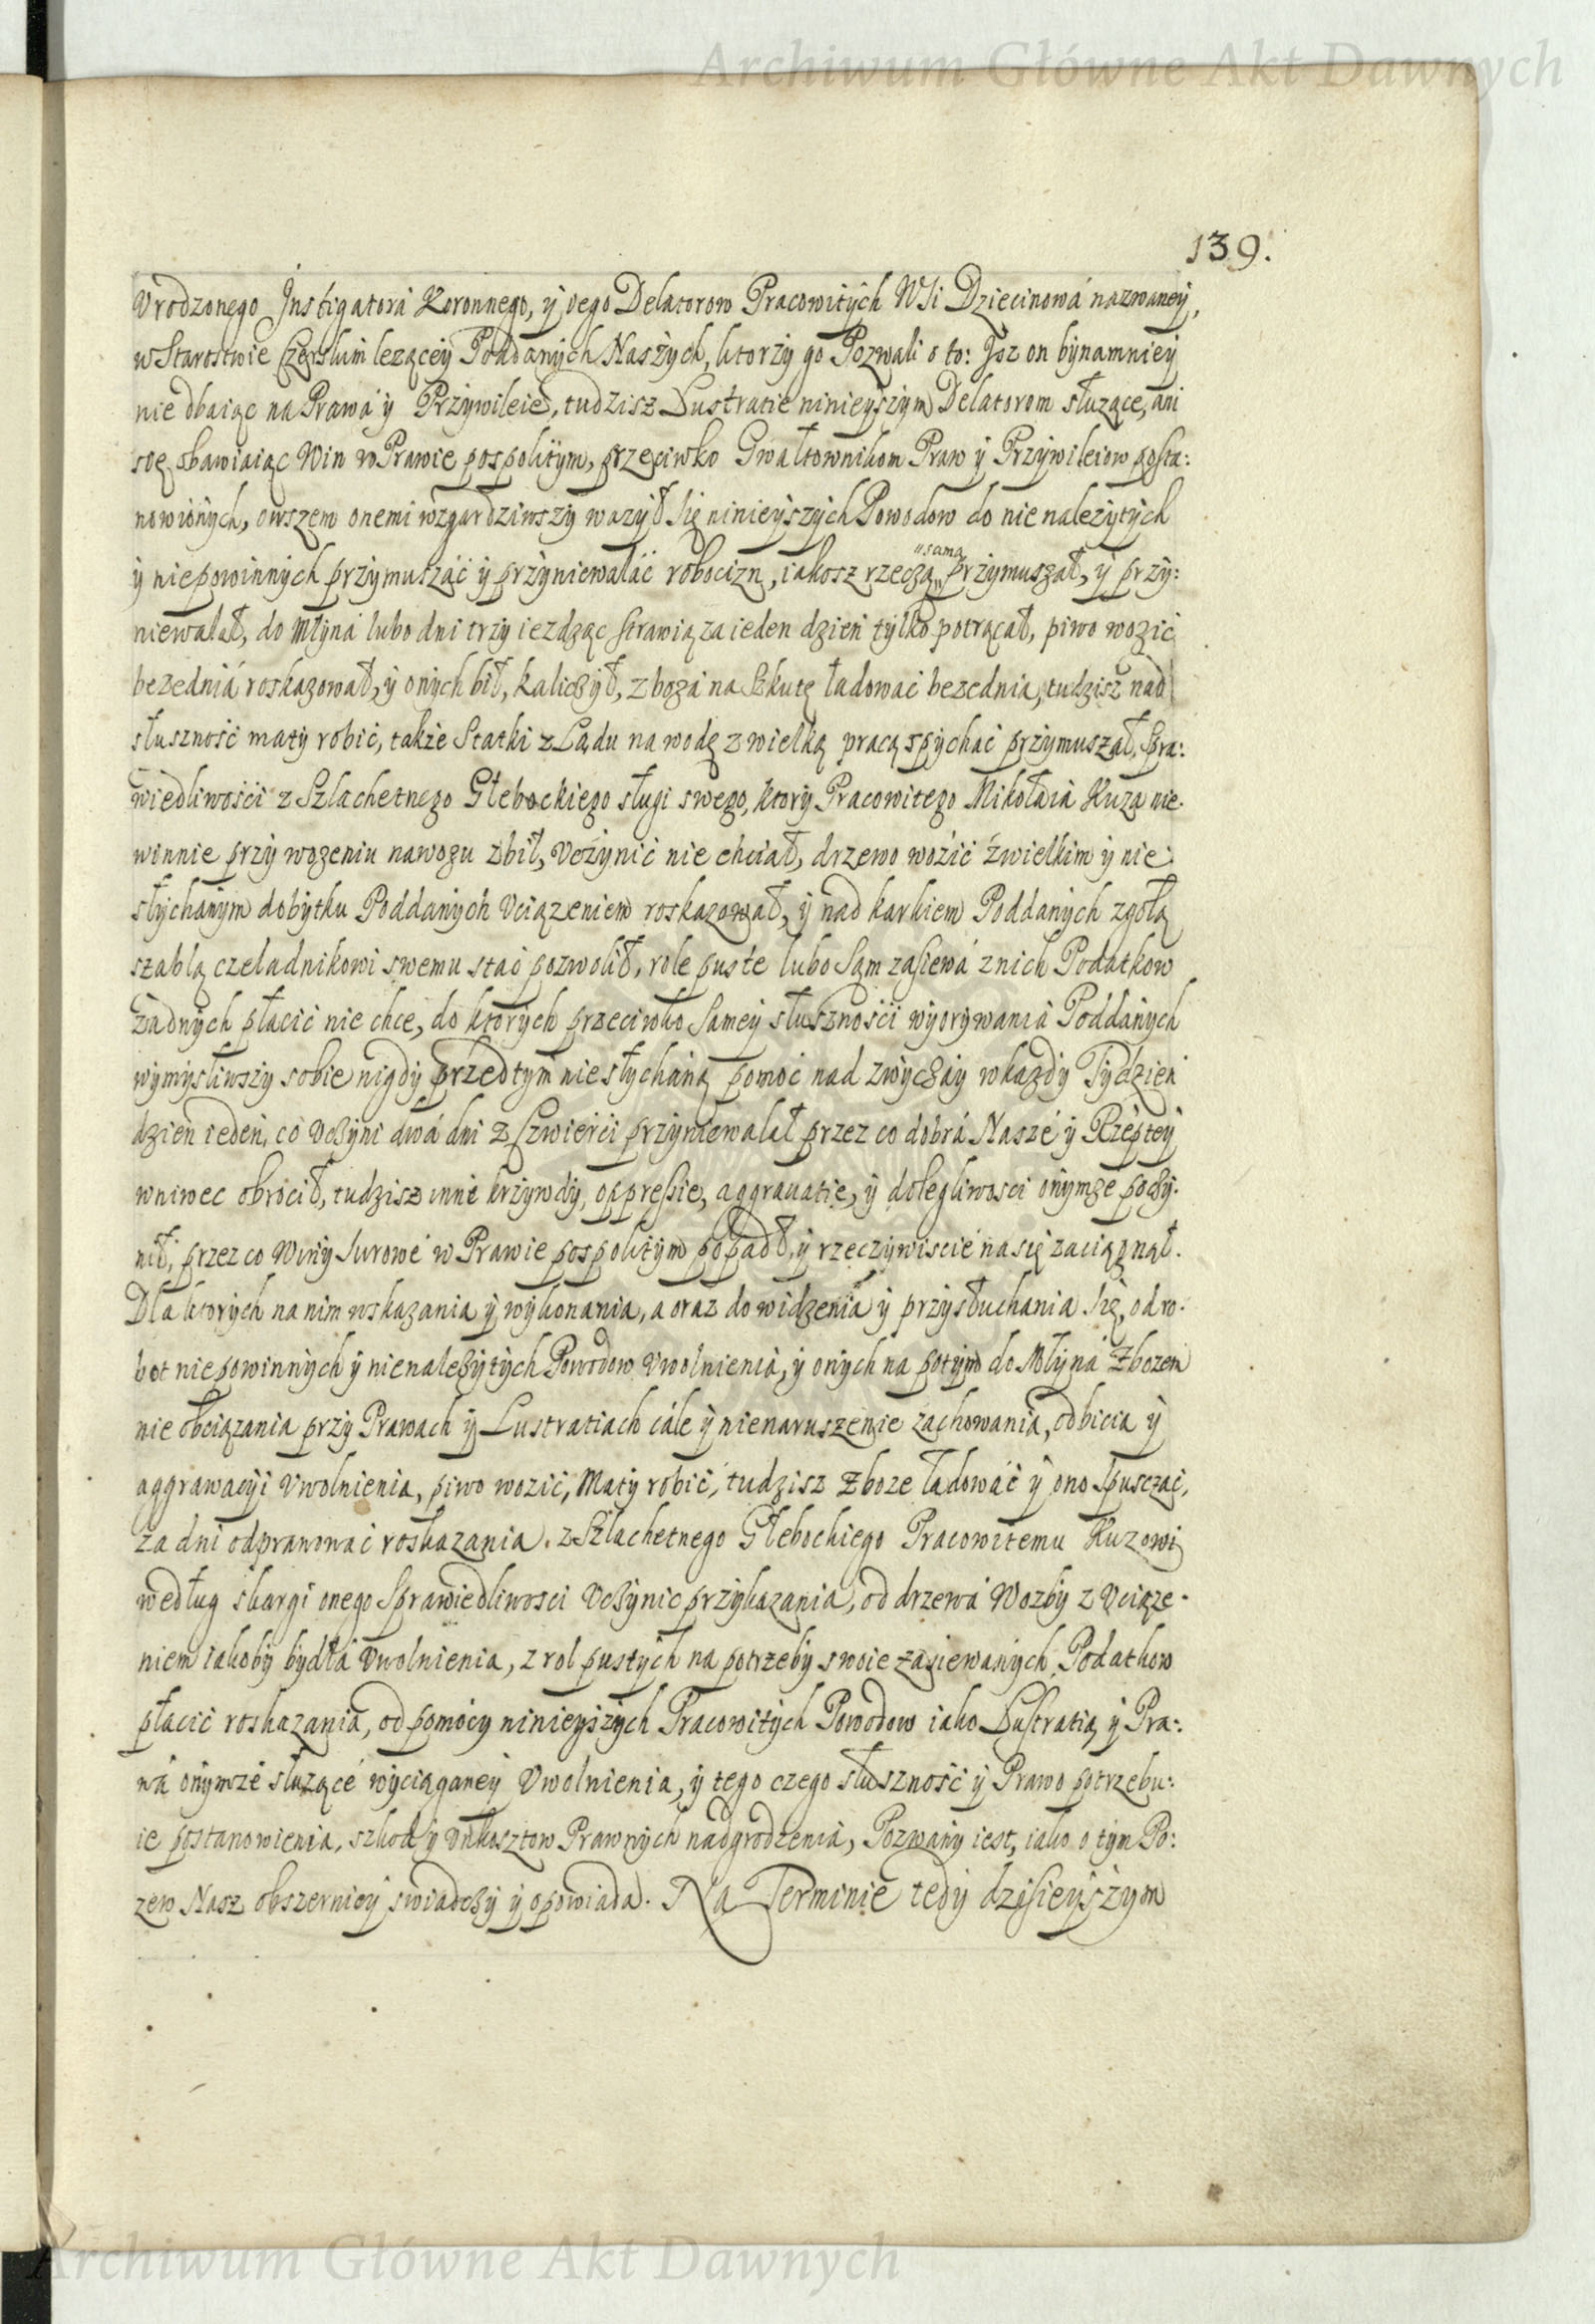 Archiwum Główne Akt Dawnych
139.
Vrodzonego Instigatora Koronnego, ÿ iego Delatorow Pracowitÿch WSi Dziecinowá nazwaneÿ,
w Starostwie Czerskim leząceÿ Poddanÿch Naszÿch, ktorzÿ go Pozwali o to: Jsz on bÿnamnieÿ
nie dbaiąc na Prawa ÿ Przÿwileie, tudzisz Lustratie ninieÿszÿm Delatorom słuzące, ani
się obawiaiąc Win w Prawie pospolitÿm, przeciwko Gwałtownikom Praw ÿ Przÿwileiow posta:
nowionÿch, owszem onemi wzgardziwszÿ wazÿł się ninieÿszÿch Powodow do nie nalezÿtÿch
ÿ niepowinnÿch przÿmuszáć ÿ przÿniewaláć robocizn, iakosz rzeczą "samą przÿmuszał, ÿ przÿ:
niewalał, do Młÿná lubo dni trzÿ iezdząc strawią za ieden dzień tÿlko potrącał, piwo wozić
bezedniá roskazował, ÿ onÿch bił, kaliczÿł, zboza na Szkutę ładować bezednia, tudzisz nad
słuszność matÿ robić, także Statki z Lądu na wodę z wielką pracą spÿchać przÿmuszał, Spra:
wiedliwości z Szlachetnego Głebockiego sługi swego, ktorÿ Pracowitego Mikołaia Kuzą nie:
winnie przÿ wozeniu nawozu zbił, Vczÿnić nie chciał, drzewo wozić z wielkim ÿ nie:
słÿchanÿm dobÿtku Poddanÿch Vciązeniem roskazował, ÿ nad karkiem Poddanÿch zgołą
szablą czeladnikowi swemu stać pozwolił, role puste lubo Sąm zasiewá z nich Podatkow
żadnÿch płacić nie chce, do ktorÿch przeciwko Sameÿ słuszności wÿorÿwaniá Poddanÿch
wÿmÿsliwszÿ sobie nigdÿ przedtÿm niesłÿchaną pomoć nad zwÿczáÿ w kazdÿ Tÿdzień
dzień ieden, co Vczÿni dwá dni z Czwierći przÿniewalał przez co dobrá Nasze ÿ Rzepteÿ
wniwec obrócił, tudzisz inne krzÿwdÿ, oppressie, aggrauatie, ÿ dolegliwosci onÿmze poczÿ:
nił, przez co Winÿ Surowe w Prawie pospolitÿm popadł, ÿ rzeczÿwiscie na się zaciągnął.
Dla ktorÿch na nim wskazania ÿ wÿkonania, a oraz do widzenia ÿ przÿsłuchania się, od ro:
bot niepowinnÿch ÿ nienalezÿtÿch Powodow Vwolnienia, ÿ onÿch na potÿm do Młÿna Zbozem
nie obciązania przÿ Prawach ÿ Lustratiach cále ÿ nienaruszenie zachowania, od bicia ÿ
aggrawacÿi Vwolnienia, piwo wozić, Matÿ robić, tudzisz Zboze ładowáć ÿ ono spusczać,
za dni odprawować roskazania. z Szlachetnego Głebockiego Pracowitemu Kuzowi
według skargi onego Sprawiedliwosci Vczÿnic przÿkazania, od drzewá Wozbÿ z Vciąze:
niem iakobÿ bÿdłá Vwolnienia, z rol pustÿch na potrzebÿ swoie zasiewanÿch Podatkow
płacić roskazania, od pomocÿ ninieÿszÿch Pracowitÿch Powodow iako Lustratią ÿ Pra:
wá onÿmze słuzące wÿciąganeÿ Vwolnienia, ÿ tego czego słuszność ÿ Prawo potrzebu:
ie postanowienia, szkod ÿ Vnkosztow Prawnÿch nadgrodzeniá, Pozwanÿ iest, iako o tÿm Po:
zew Nasz obszernieÿ swiadczÿ ÿ opowiada. Na Terminie tedÿ dzisieÿszÿm
Archiwum Główne Akt Dawnych